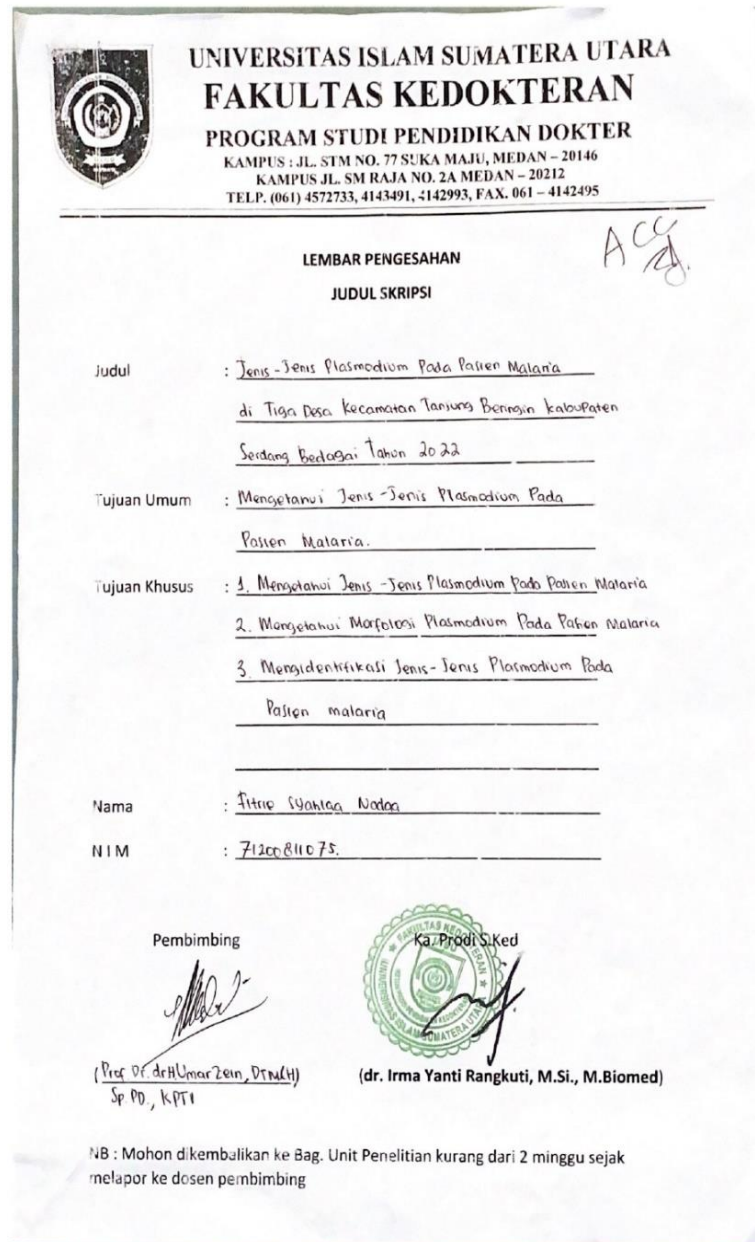 UNIVERSITAS ISLAM SUMATERA UTARA
FAKULTAS KEDOKTERAN
PROGRAM STUDI PENDIDIKAN DOKTER
KAMPUS : JL. STM NO. 77 SUKA MAJU, MEDAN – 20146
KAMPUS JL. SM RAJA NO. 2A MEDAN – 20212
TELP. (061) 4572733, 4143491, 4142993, FAX. 061 – 4142495
ACC
LEMBAR PENGESAHAN
JUDUL SKRIPSI
Judul : Jenis-Jenis Plasmodium Pada Pasien Malaria
di Tiga Desa Kecamatan Tanjung Beringin Kabupaten
Serdang Bedagai Tahun 2022
Tujuan Umum : Mengetahui Jenis-Jenis Plasmodium Pada
Pasien Malaria.
Tujuan Khusus : 1. Mengetahui Jenis-Jenis Plasmodium Pada Pasien Malaria
2. Mengetahui Morfologi Plasmodium Pada Pasien Malaria
3. Mengidentifikasi Jenis-Jenis Plasmodium Pada
Pasien malaria
Nama :
NIM : 71200811075.
Pembimbing
Ka. Prodi S.Ked
FAKULTAS KEDOKTERAN
UNIVERSITAS ISLAM SUMATERA UTARA
(Prof. Dr. dr H Umar Zein, DTM&H)
Sp.PD., KPTI
(dr. Irma Yanti Rangkuti, M.Si., M.Biomed)
NB : Mohon dikembalikan ke Bag. Unit Penelitian kurang dari 2 minggu sejak
melapor ke dosen pembimbing